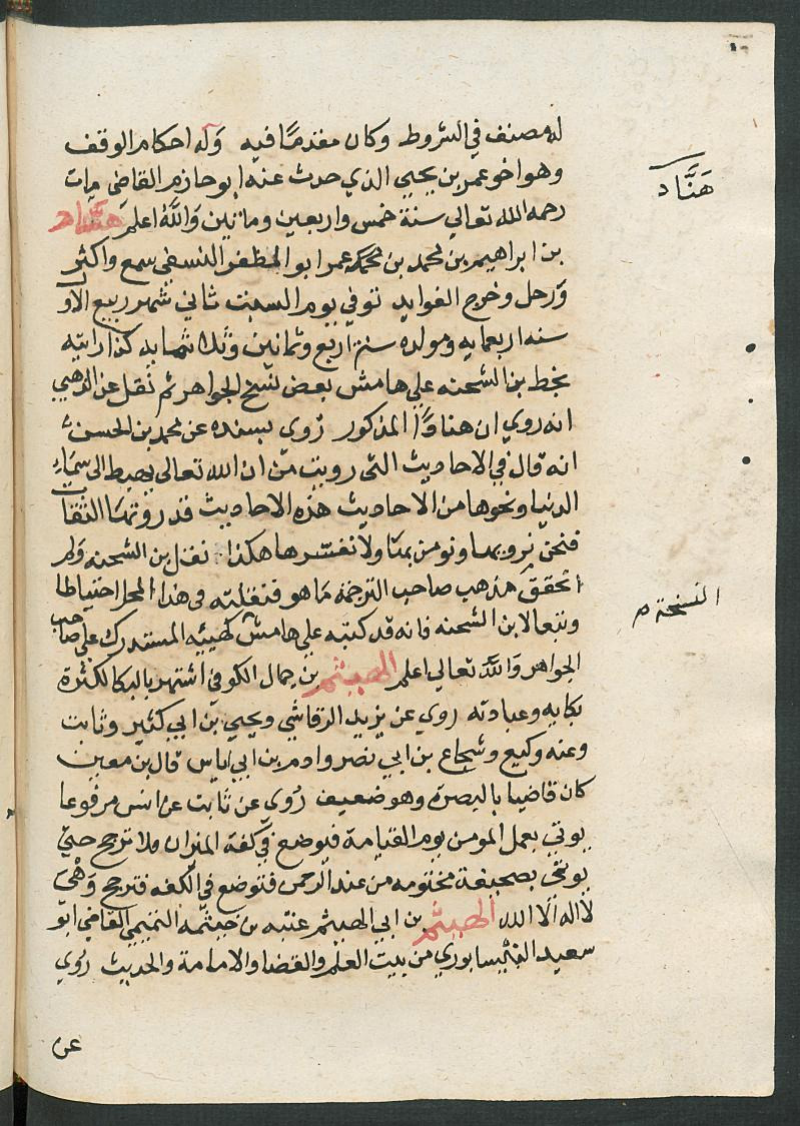 له مصنف في الشروط وكان مقدمًا فيه وَله احكام الوقف
وهو اخو عمر بن يحيي الذي حدث عنه ابو حازم القاضي مات
هَنَّاد
رحمه الله تعالي سنة خمس واربعين وماتين وَاللّه اعلم هنَّاد
بن ابراهيم بن محمد بن عمر ابو المظفر النسفي سمع واكثر
وَرحل وخرج الفوايد توفي يوم السبت ثاني شهر ربيع الاَوّ
سنه اربعمايه ومولده سنة اربع وثمانين وثلاثمايه كذا رايته
بخط بن الشحنه علي هامش بعض نسخ الجواهر ثم نقل عن الذهبي
انه روي ان هنادًا المذكور رُوي بسنده عن محمد بن الحسن
انه قال في الاحاديث التي رويت من ان الله تعالي يهبط الي سَماءِ
الدنيا ونحوها من الاحاديث هذه الاحاديث قد روتها الثقات
فنحن نرويها ونومن بها ولا نفسرها هكذا نقل بن الشحنه وَلم
اتحقق مذهب صاحب الترجمة مَا هو فنقلته في هذا المحل احتياطا
النسخة م
وتبعا لابن الشحنه فانه قد كتبه علي هامش كهيئه المستدرك علي صاحب
الجواهر وَاللّه تعالي اعلم الهيثم بن جمال الكوفي اشتهر بالبكا لكثرة
بكايه وعبادته روي عن يزيد الرقاشي ويحيي بن ابي كثير وثابت
وعنه وكيع وشجاع بن ابي نصر وادم بن ابي اياس قال بن معين
كان قاضيا بالبصرة وهو ضعيف رُوي عن ثابت عن انس مرفوعا
يوتي بعمل المومن يوم القيامة فيوضع في كفة الميزان فلا ترجح حتيّ
يوتي بصحيفة مختومه من عند الرحمن فتوضع في الكفه فترجح وَهْيَ
لا اله الا الله الهيثم بن ابي الهيثم عتبه بن خيثمه التميمي القاضي ابوّ
سعيد النيسابوري من بيت العلم والقضا والامامة والحديث رُوي
عن